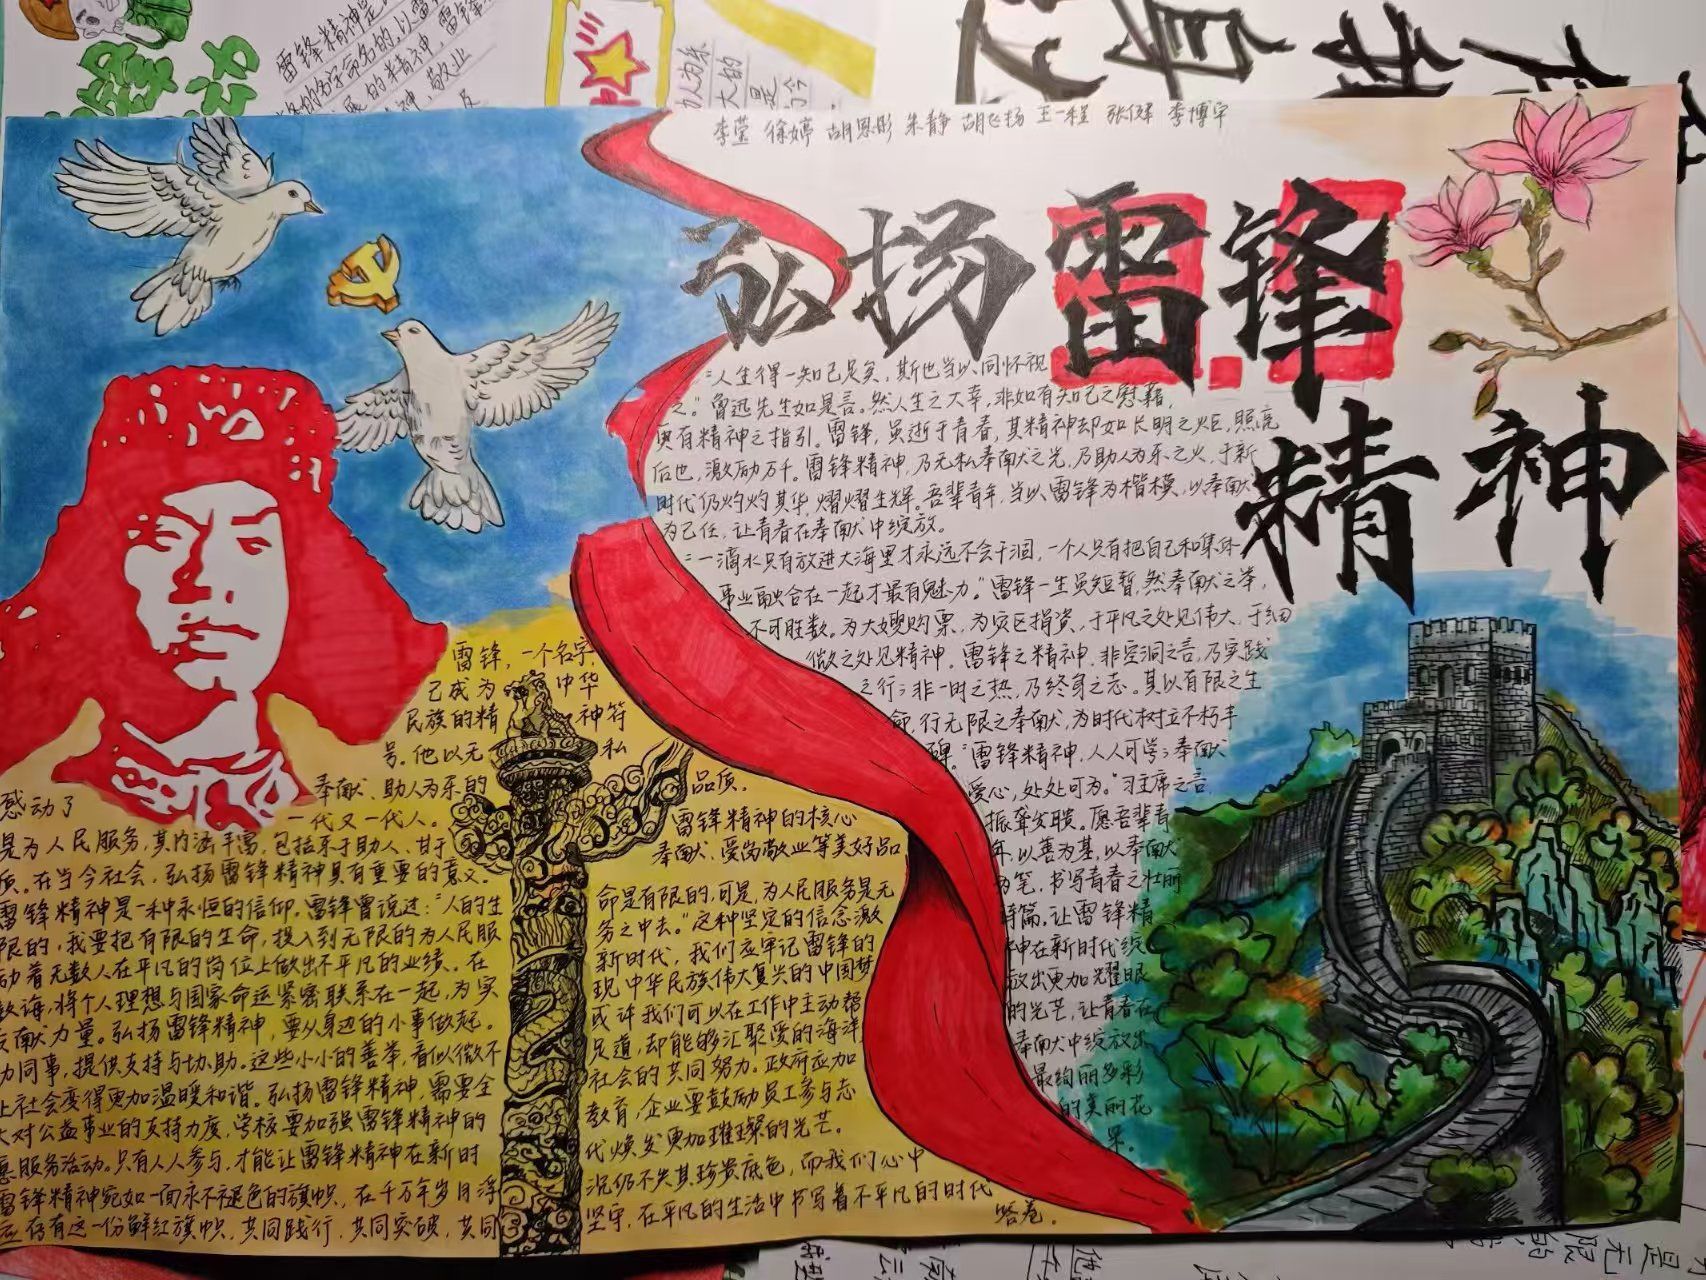 李莹 徐婷 胡恩彤 朱静 胡飞扬 王一程 张健 李博宇
弘扬雷锋
精神
"人生得一知己足矣，斯世当以同怀视
之。"鲁迅先生如是言。然人生之大幸，非如有知己之慰藉，
更有精神之指引。雷锋，虽逝于青春，其精神却如长明之炬，照亮
后世，激励万千。雷锋精神，乃无私奉献之光，乃助人为乐之火，于新
时代仍灼灼其华，熠熠生辉。吾辈青年，当以雷锋为楷模，以奉献
为己任，让青春在奉献中绽放。
"一滴水只有放进大海里才永远不会干涸，一个人只有把自己和集体
事业融合在一起才最有魅力。"雷锋一生虽短暂，然奉献之举，
不可胜数。为大嫂购票，为灾区捐资，于平凡之处见伟大，于细
微之处见精神。雷锋之精神，非空洞之言，乃实践
之行；非一时之热，乃终身之志。其以有限之生
命，行无限之奉献，为时代树立不朽丰
碑。"雷锋精神，人人可学；奉献
爱心，处处可为。"习主席之言
振聋发聩。愿吾辈青
年，以善为基，以奉献
为笔，书写青春之壮丽
诗篇，让雷锋精
神在新时代绽
放出更加耀眼
的光芒，让青春在
奉献中绽放出
最绚丽多彩
的美丽花
朵。
雷锋，一个名字，
已成为 中华
民族的精 神符
号。他以无 私
奉献、助人为乐的 品质，
感动了 一代又一代人。
雷锋精神的核心
是为人民服务，其内涵丰富，包括乐于助人、甘于 奉献、爱岗敬业等美好品
质。在当今社会，弘扬雷锋精神具有重要的意义。
雷锋精神是一种永恒的信仰。雷锋曾说过："人的生 命是有限的，可是，为人民服务是无
限的，我要把有限的生命，投入到无限的为人民服 务之中去。"这种坚定的信念激
励着无数人在平凡的岗位上做出不平凡的业绩。在 新时代，我们应牢记雷锋的
教诲，将个人理想与国家命运紧密联系在一起，为实 现中华民族伟大复兴的中国梦
贡献力量。弘扬雷锋精神，要从身边的小事做起。 或许我们可以在工作中主动帮
助同事，提供支持与协助。这些小小的善举，看似微不 足道，却能够汇聚爱的海洋，
让社会变得更加温暖和谐。弘扬雷锋精神，需要全 社会的共同努力。政府应加
大对公益事业的支持力度，学校要加强雷锋精神的 教育，企业要鼓励员工参与志
愿服务活动。只有人人参与，才能让雷锋精神在新时 代焕发更加璀璨的光芒。
雷锋精神宛如一面永不褪色的旗帜，在千万年岁月浮 沉仍不失其珍贵底色，而我们心中
应存有这一份鲜红旗帜，共同践行，共同突破，共同 坚守，在平凡的生活中书写着不平凡的时代
答卷。